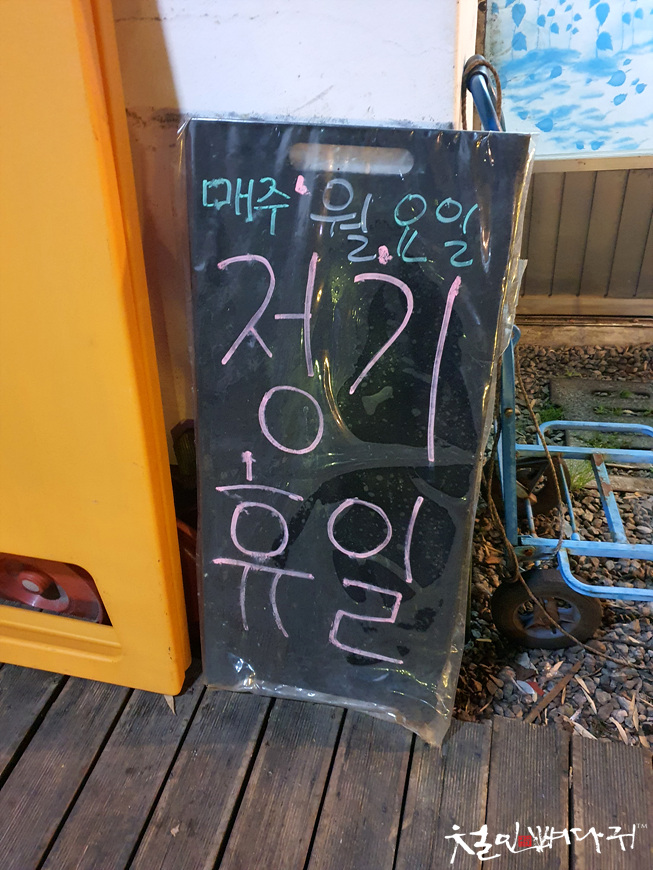 매주 월요일
정기
휴일
철인뼈다귀™